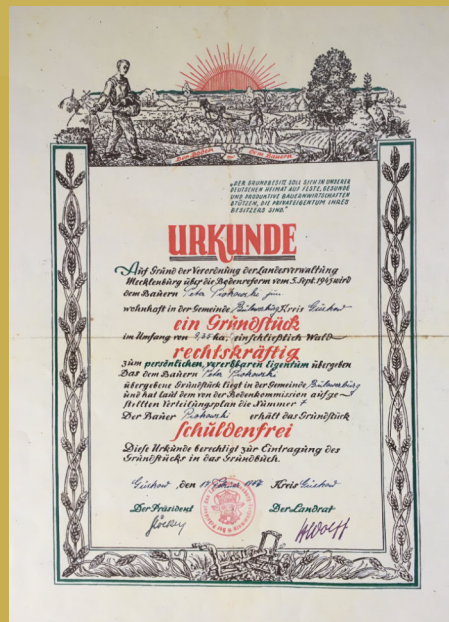 Den Boden nur dem Bauern
„DER GRUNDBESITZ SOLL SICH IN UNSERER
DEUTSCHEN HEIMAT AUF FESTE, GESUNDE
UND PRODUKTIVE BAUERNWIRTSCHAFTEN
STÜTZEN, DIE PRIVATEIGENTUM IHRES
BESITZERS SIND.“
URKUNDE
Auf Grund der Verordnung der Landesverwaltung
Mecklenburg über die Bodenreform vom 5. Sept. 1945 wird
dem Bauern Peter Piotrowski jun
wohnhaft in der Gemeinde Kreis Güstrow
ein Grundstück
im Umfang von ha, einschließlich Wald
rechtskräftig
zum persönlichen, vererbbaren Eigentum übergeben
Das dem Bauern Peter Piotrowski
übergebene Grundstück liegt in der Gemeinde
und hat laut dem von der Bodenkommission aufge-
stellten Verteilungsplan die Nummer 7
Der Bauer Piotrowski erhält das Grundstück
schuldenfrei
Diese Urkunde berechtigt zur Eintragung des
Grundstücks in das Grundbuch.
Güstrow, den Kreis Güstrow
Der Präsident Der Landrat